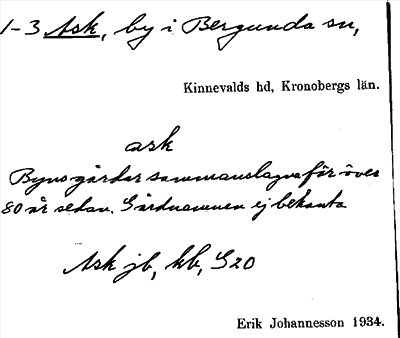 1-3 Ask, by i Bergunda sn,
Kinnevalds hd, Kronobergs län.
ask
Byns gårdar sammanslagna för över
80 år sedan. Gårdnamnen ej bekanta
Ask jb, kb, G20
Erik Johannesson 1934.